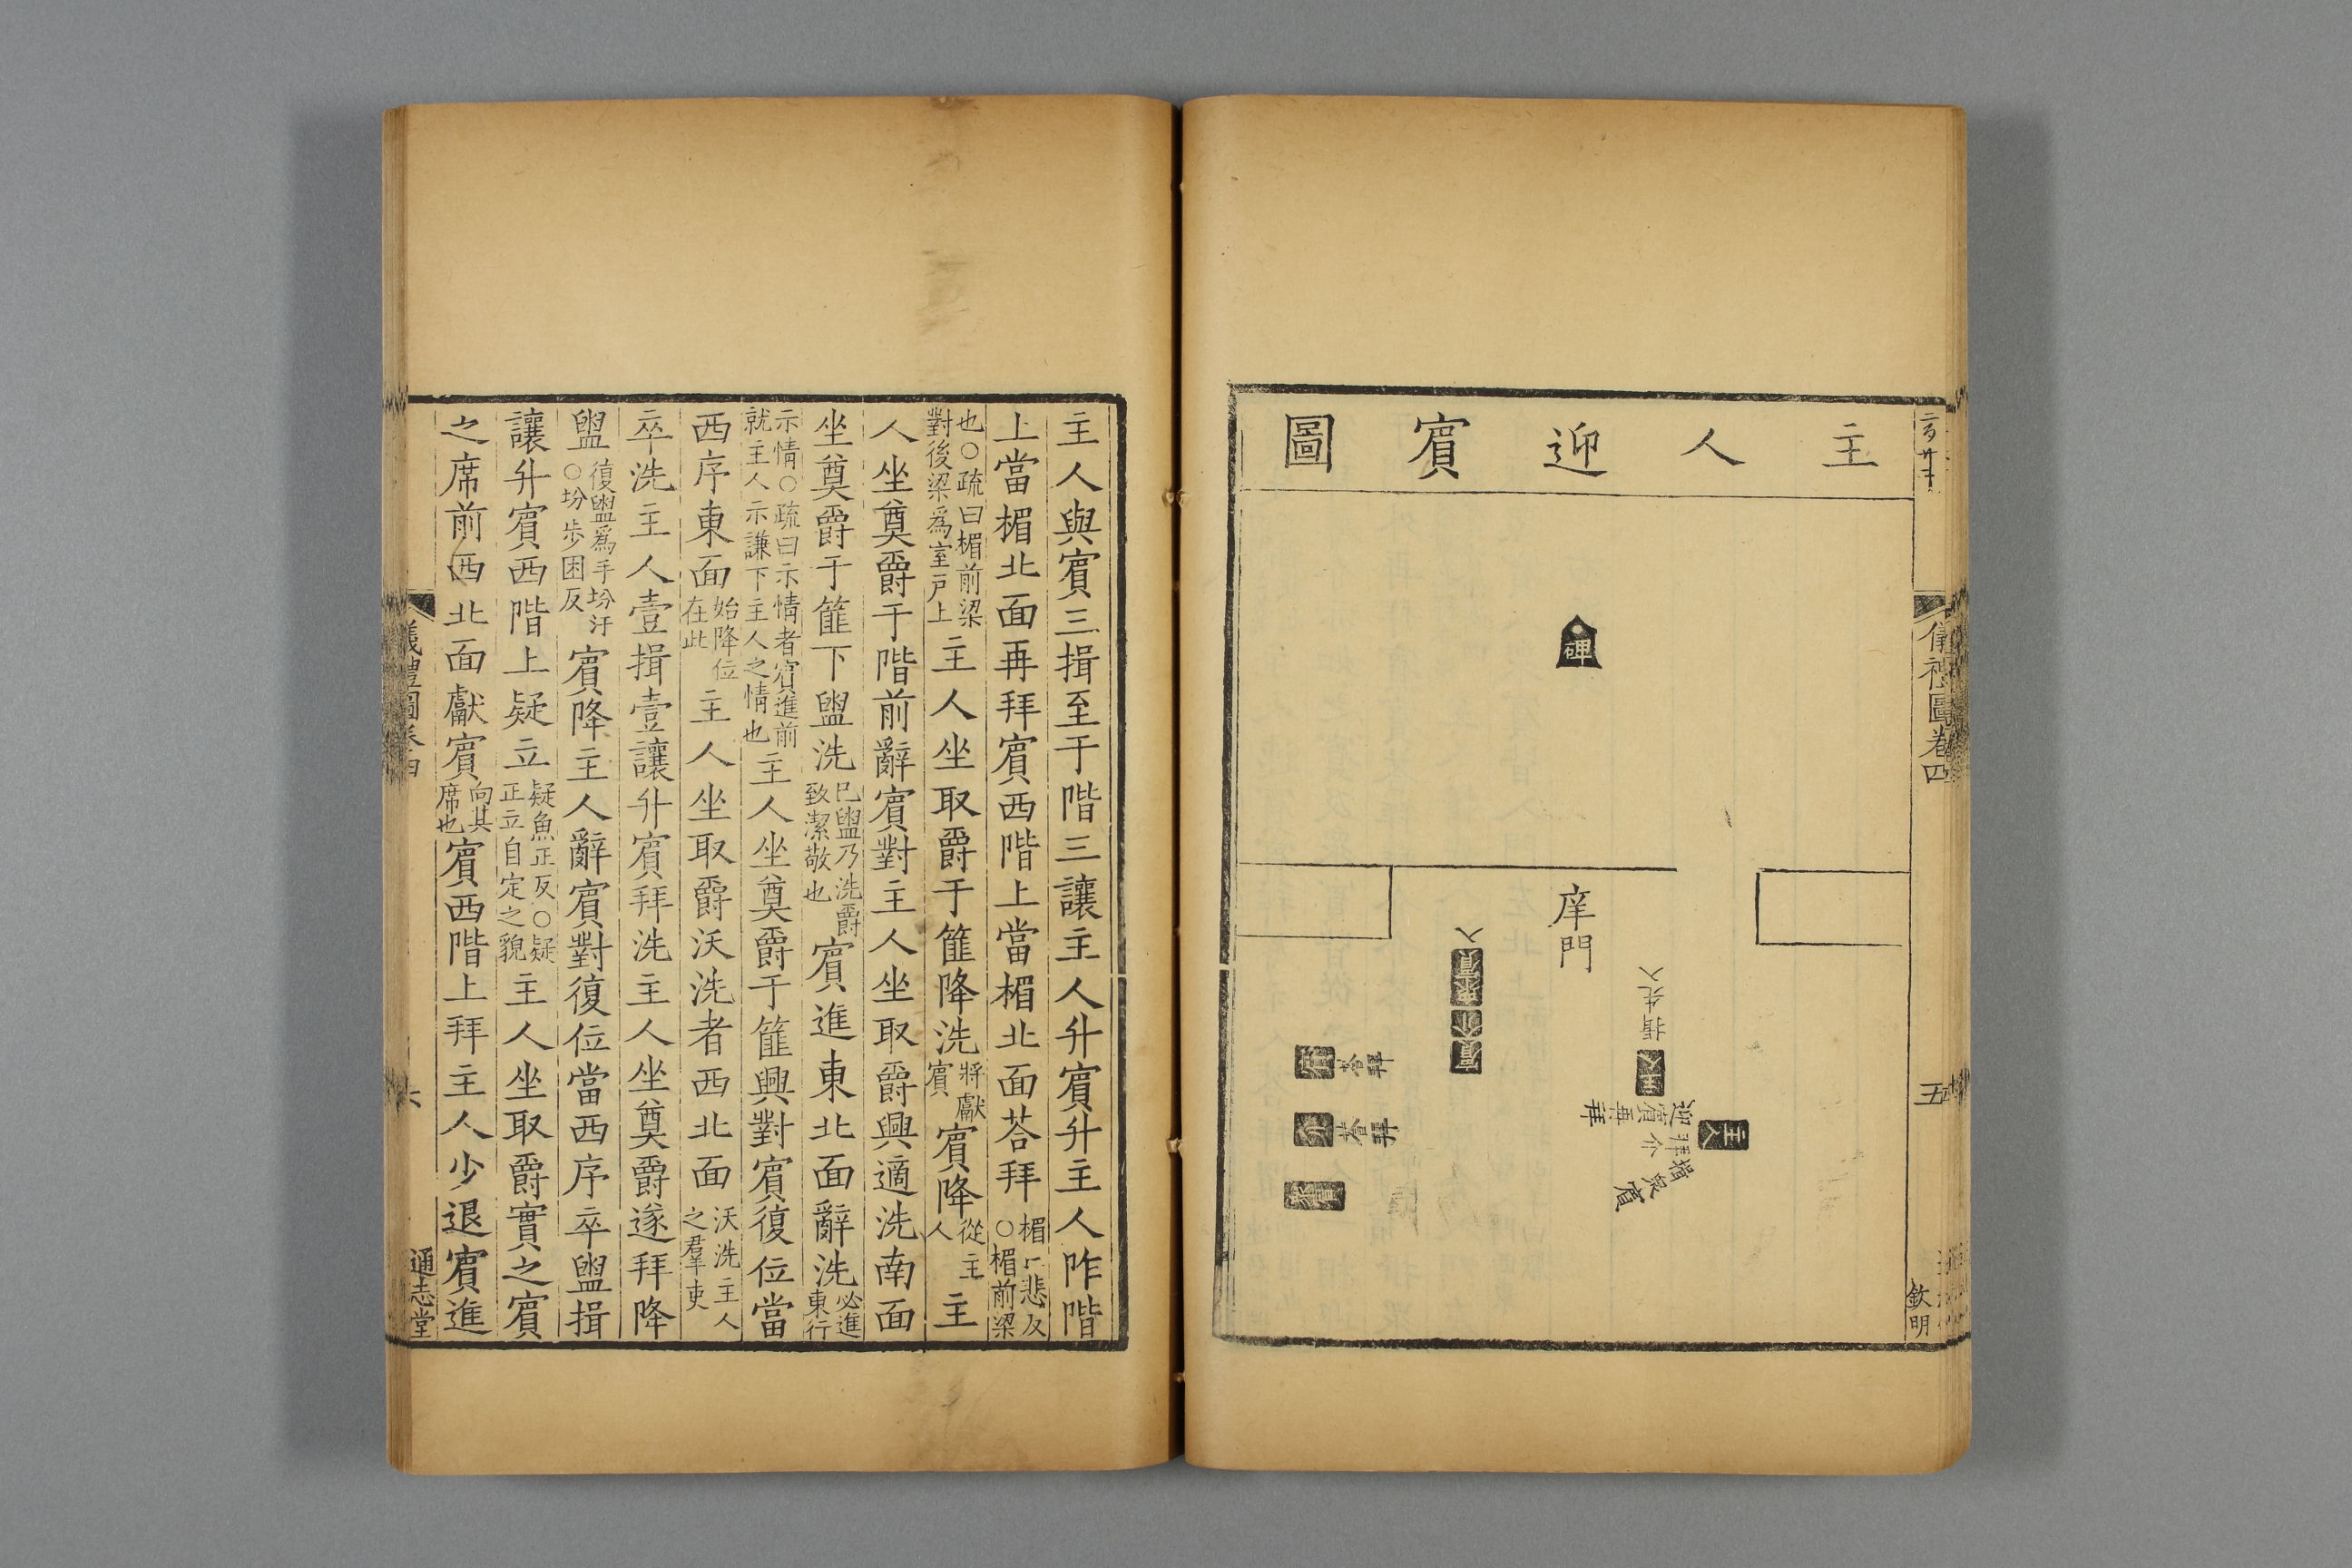 主人迎賓圖
碑
庠門
主人
揖先入
主人
迎賓再拜
拜介
揖衆賓
賓介衆賓入
賓
荅拜
介
荅拜
衆賓
儀禮圖卷四
五
欽明
主人與賓三揖至于階三讓主人升賓升主人阼階
上當楣北面再拜賓西階上當楣北面荅拜
楣亡悲反
○楣前梁
也○疏曰楣前梁
對後梁爲室戸上
主人坐取爵于篚降洗
將獻
賓
賓降
從主
人
主
人坐奠爵于階前辭賓對主人坐取爵興適洗南面
坐奠爵于篚下盥洗
已盥乃洗爵
致潔敬也
賓進東北面辭洗
必進
東行
示情○疏曰示情者賓進前
就主人示謙下主人之情也
主人坐奠爵于篚興對賓復位當
西序東面
始降位
在此
主人坐取爵沃洗者西北面
沃洗主人
之羣吏
卒洗主人壹揖壹讓升賓拜洗主人坐奠爵遂拜降
盥
復盥爲手坋汙
○坋步困反
賓降主人辭賓對復位當西序卒盥揖
讓升賓西階上疑立
疑魚正反○疑
正立自定之貌
主人坐取爵實之賓
之席前西北面獻賓
向其
席也
賓西階上拜主人少退賓進
儀禮圖卷四
六
通志堂